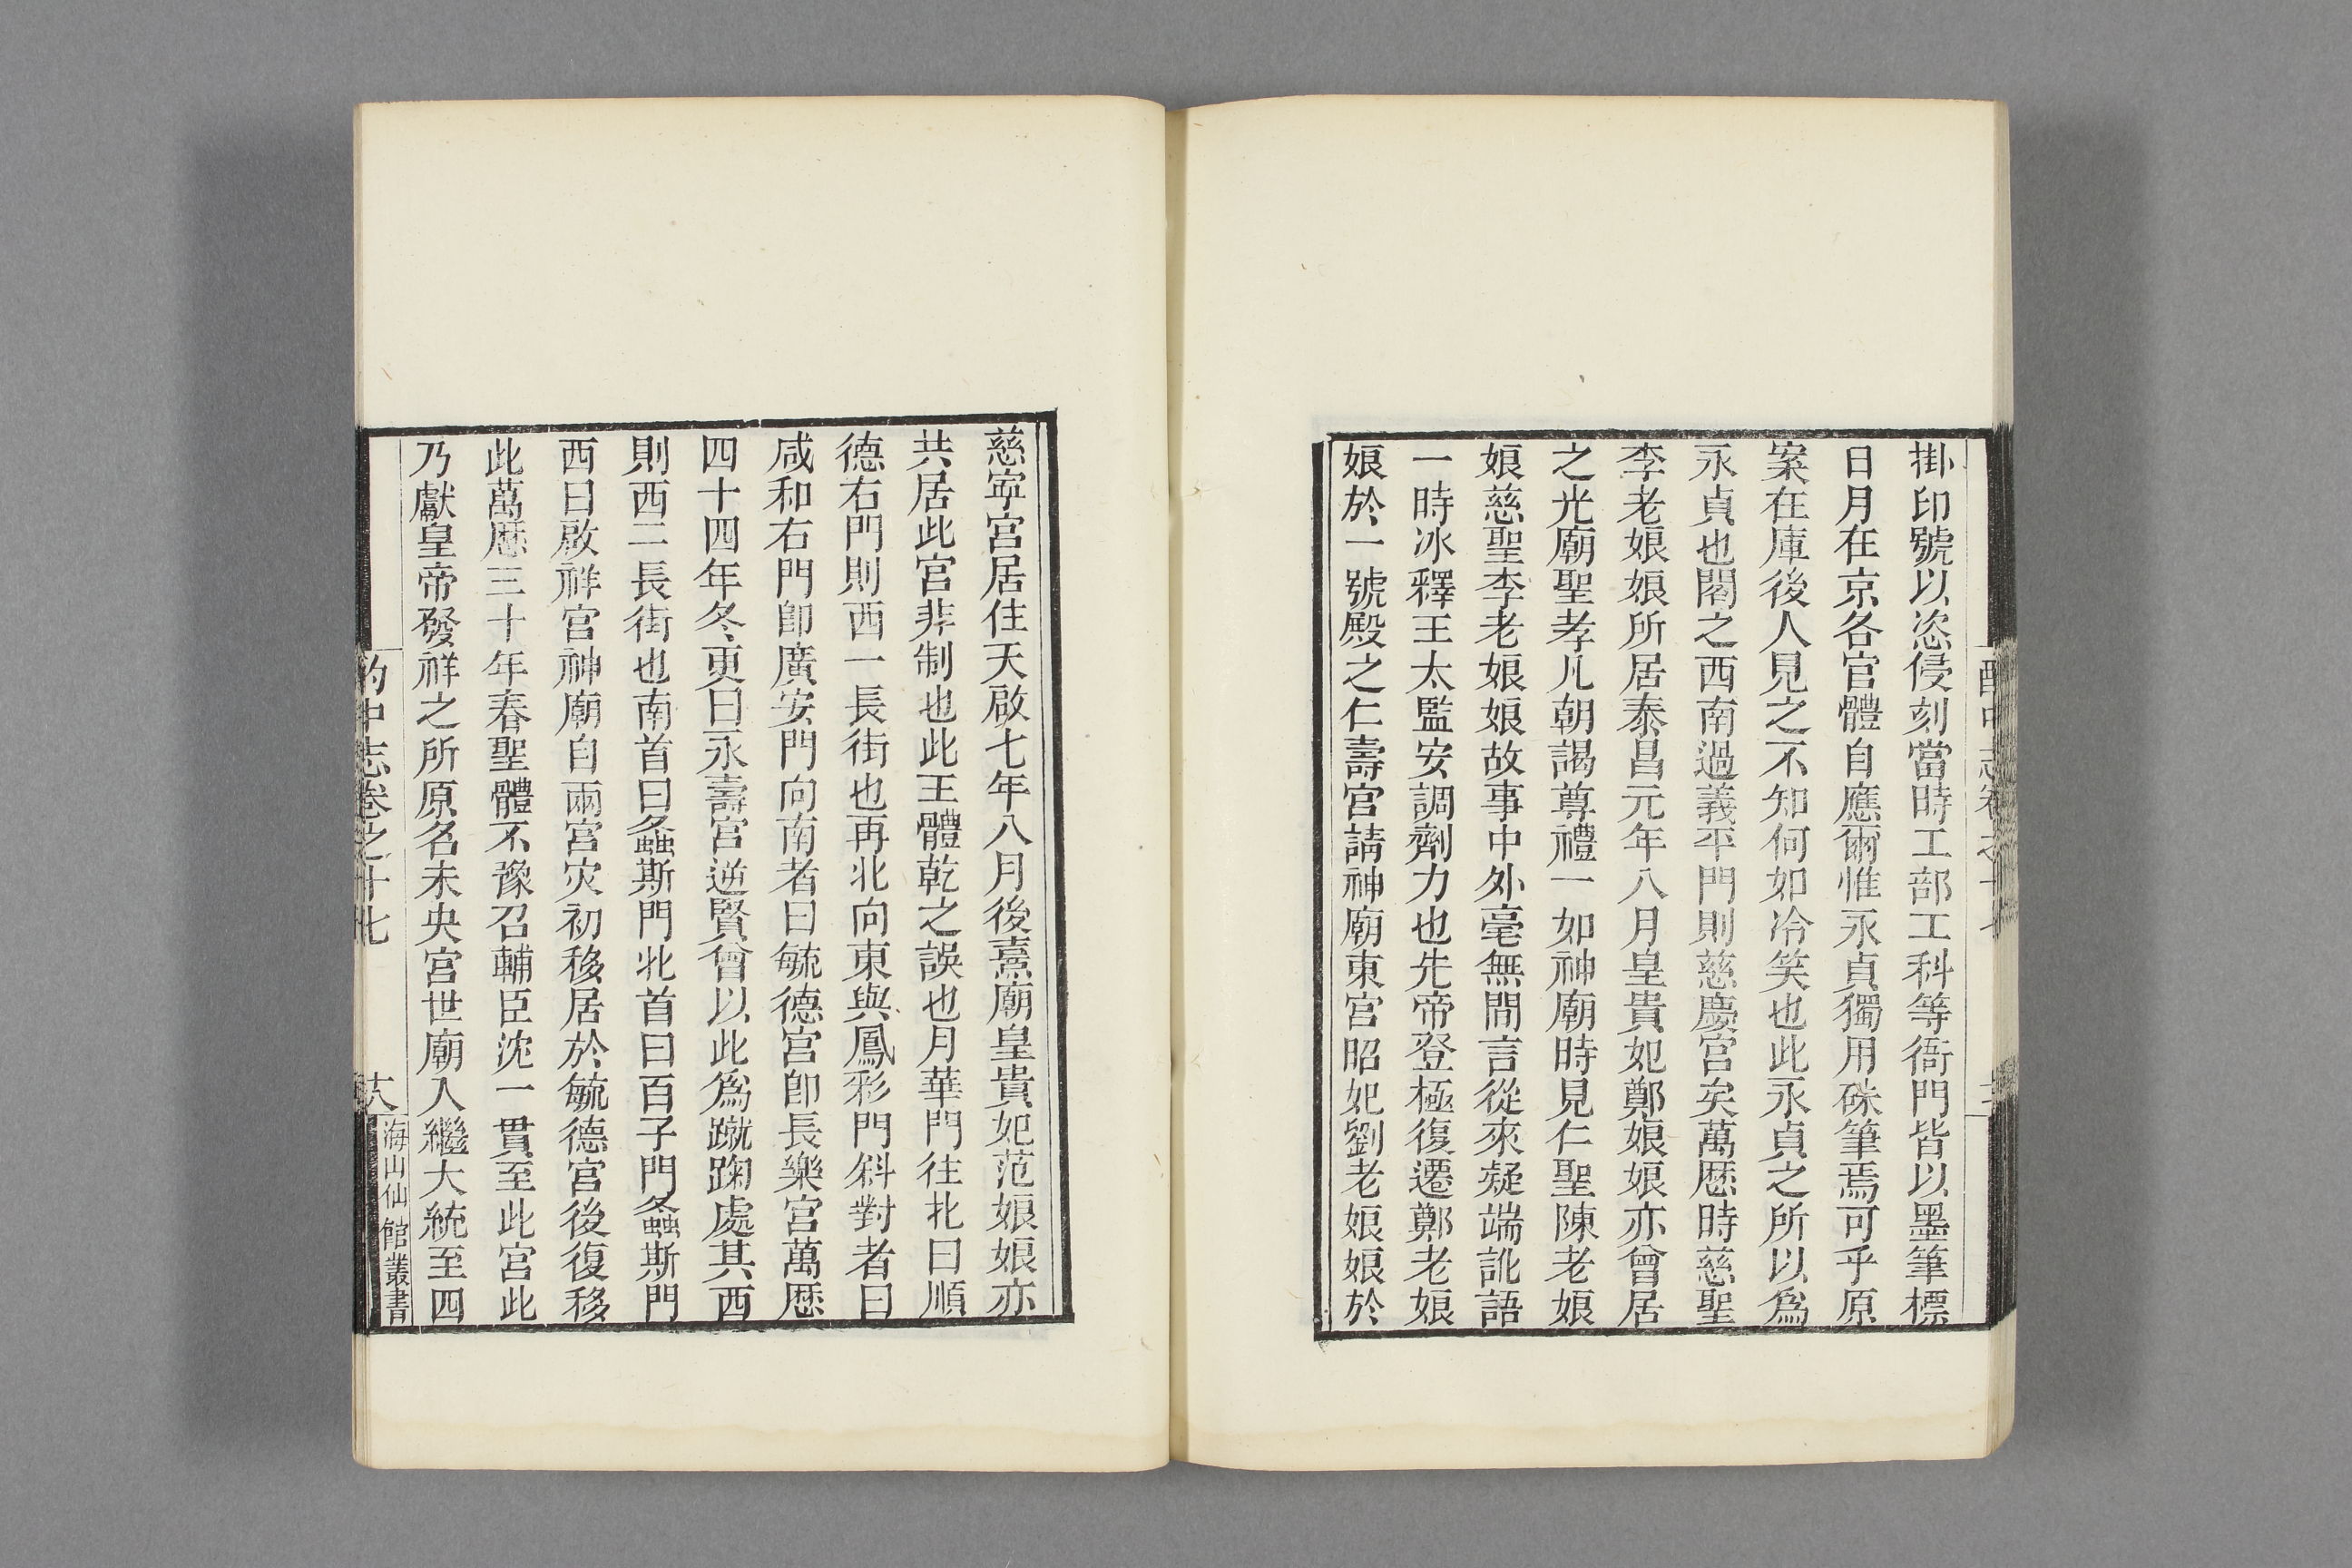 掛印號以恣侵刻當時工部工科等衙門皆以墨筆標
日月在京各官體自應爾惟永貞獨用硃筆焉可乎原
案在庫後人見之不知何如冷笑也此永貞之所以為
永貞也閣之西南過義平門則慈慶宮矣萬厯時慈聖
李老娘娘所居泰昌元年八月皇貴妃鄭娘娘亦曾居
之光廟聖孝凡朝謁尊禮一如神廟時見仁聖陳老娘
娘慈聖李老娘娘故事中外毫無間言從來疑端訛語
一時冰釋王太監安調劑力也先帝登極復遷鄭老娘
娘於一號殿之仁壽宮請神廟東宮昭妃劉老娘娘於
慈寧宮居住天啟七年八月後熹廟皇貴妃范娘娘亦
共居此宮非制也此王體乾之誤也月華門往北曰順
德右門則西一長街也再北向東與鳳彩門斜對者曰
咸和右門卽廣安門向南者曰毓德宮卽長樂宮萬厯
四十四年冬更曰永壽宮逆賢曾以此為蹴踘處其西
則西二長街也南首曰螽斯門北首曰百子門螽斯門
西曰啟祥宮神廟自兩宮灾初移居於毓德宮後復移
此萬厯三十年春聖體不豫召輔臣沈一貫至此宮此
乃獻皇帝發祥之所原名未央宮世廟入繼大統至四
酌中志卷之十七
十八
海山仙館叢書